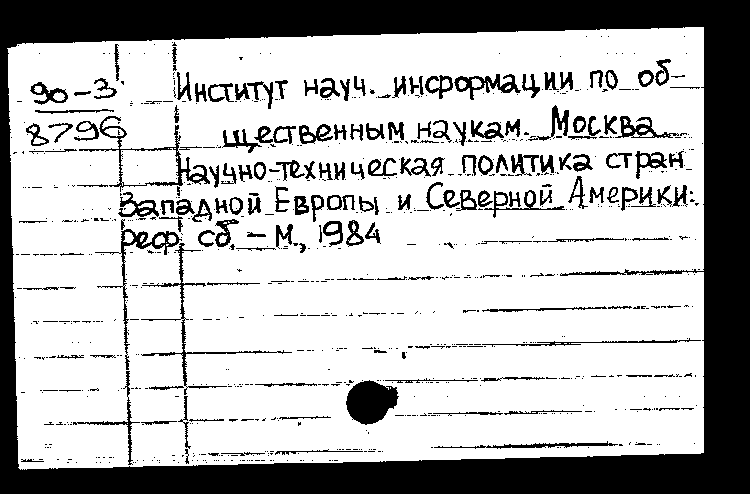 90-3
8796
Институт науч. информации по об-
щественным наукам. Москва.
Научно-техническая политика стран
Западной Европы и Северной Америки:
реф. сб. – М., 1984